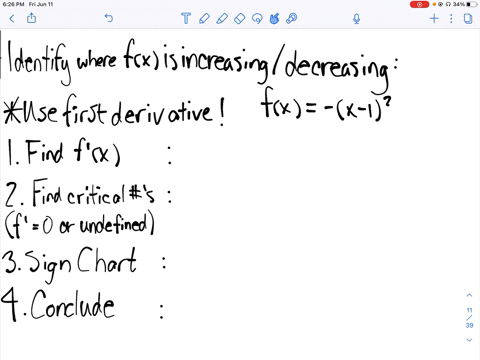 6:26 PM Fri Jun 11
34%
Identify where f(x) is increasing/decreasing:
*Use first derivative! f(x) = -(x-1)²
1. Find f'(x) :
2. Find critical #'s :
(f' = 0 or undefined)
3. Sign Chart :
4. Conclude :
11
/
39